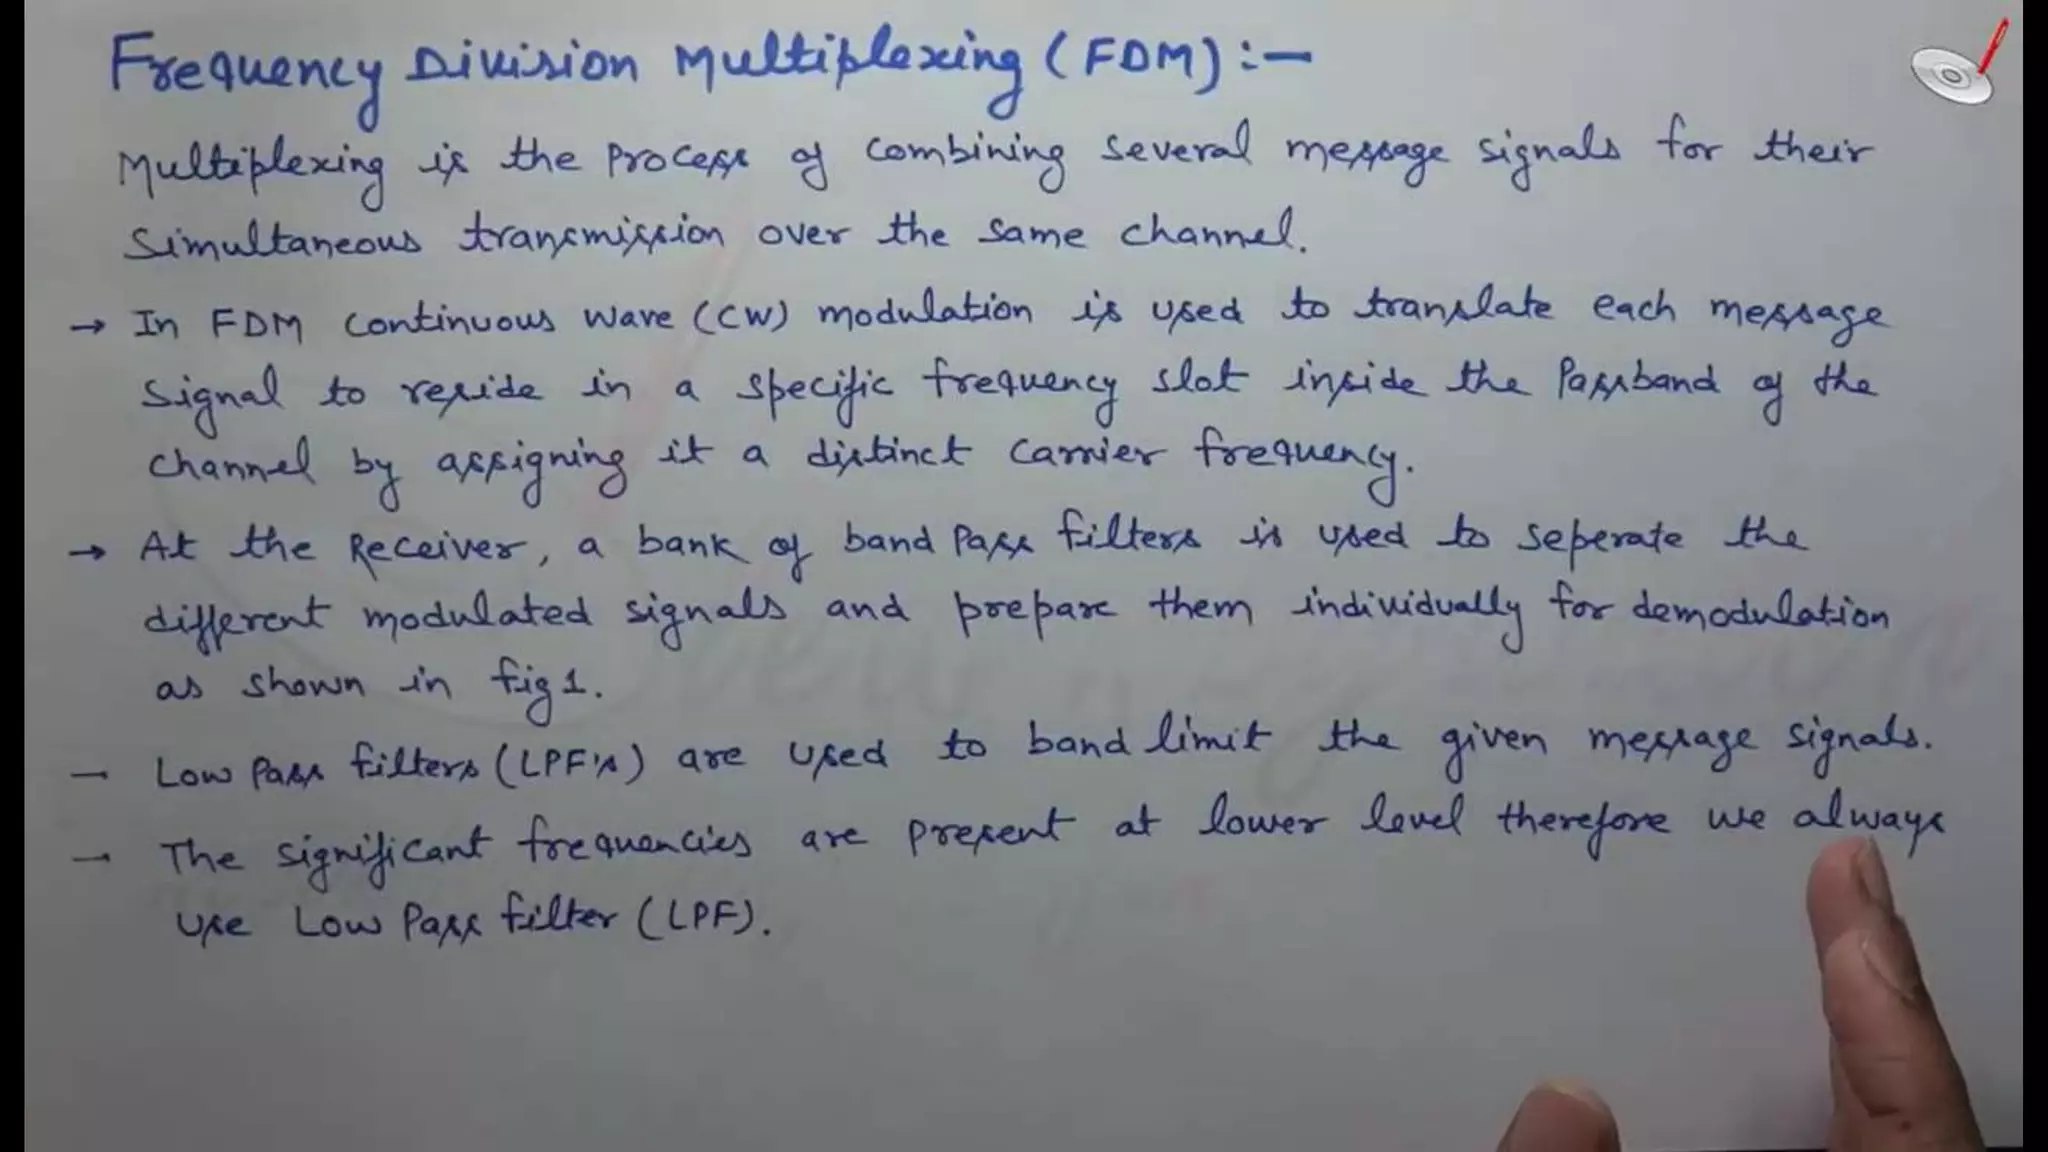 Frequency Division Multiplexing (FDM) :-
Multiplexing is the process of combining several message signals for their
simultaneous transmission over the same channel.
→ In FDM continuous wave (CW) modulation is used to translate each message
signal to reside in a specific frequency slot inside the Passband of the
channel by assigning it a distinct carrier frequency.
→ At the Receiver, a bank of band Pass filters is used to seperate the
different modulated signals and prepare them individually for demodulation
as shown in fig 1.
→ Low Pass filters (LPF's) are used to band limit the given message signals.
→ The significant frequencies are present at lower level therefore we always
use Low Pass filter (LPF).